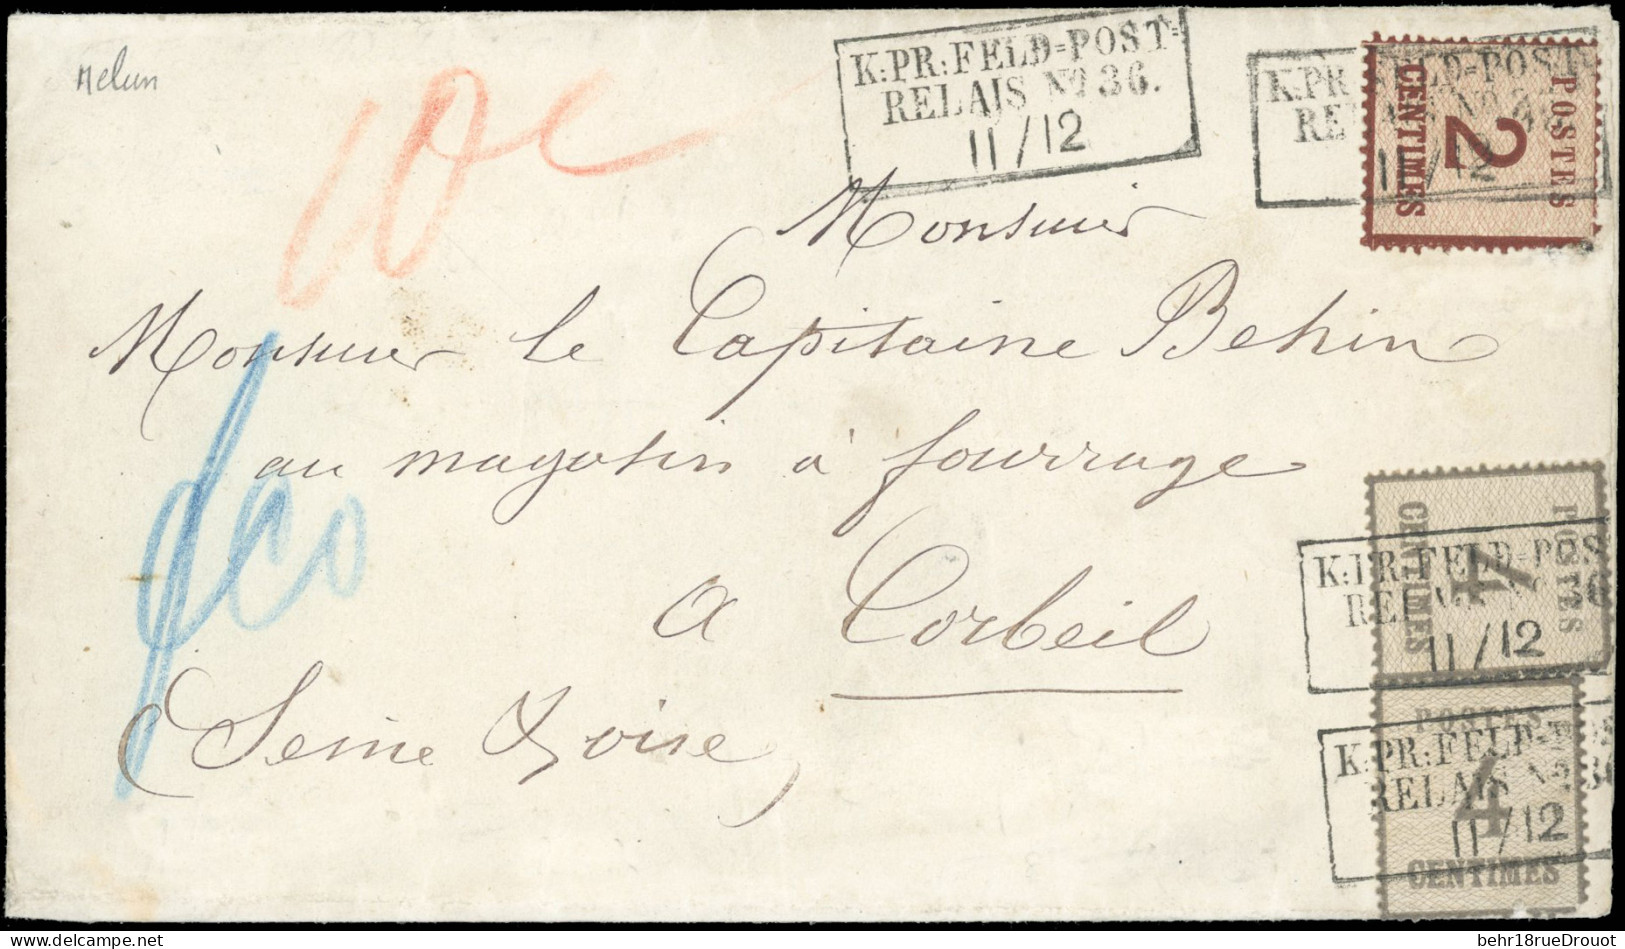 Melun
10 c
K:PR:FELD=POST=
RELAIS No 36.
11/12
K:PR:FELD=POST=
RELAIS No 36.
11/12
POSTES
2
CENTIMES
Monsieur
Monsieur le Capitaine Behin
au magasin à fourrage
a Corbeil
Seine & oise,
K:PR:FELD=POS
RELAIS No 36
11/12
POSTES
4
CENTIMES
K:PR:FELD=POS
RELAIS No 36
11/12
POSTES
4
CENTIMES
delcampe.net
behr18rueDrouot